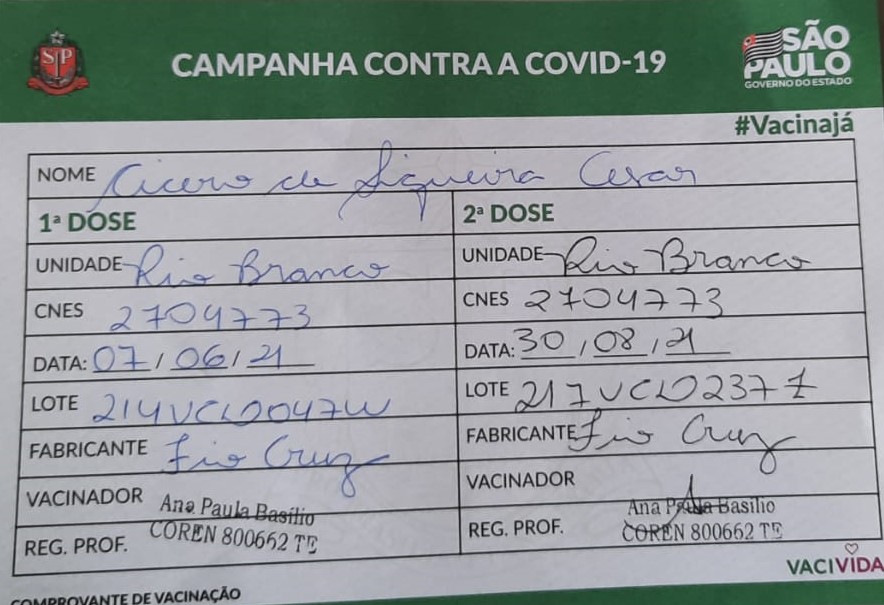 SP
CAMPANHA CONTRA A COVID-19
SÃO
PAULO
GOVERNO DO ESTADO
#Vacinajá
NOME Cicero de Siqueira Cesar
1ª DOSE
UNIDADE Rio Branco
CNES 2704773
DATA: 07/06/21
LOTE 214VCD047W
FABRICANTE Fio Cruz
VACINADOR Ana Paula Basilio
REG. PROF. COREN 800662 TE
2ª DOSE
UNIDADE Rio Branco
CNES 2704773
DATA: 30/08/21
LOTE
FABRICANTE Fio Cruz
VACINADOR Ana Paula Basilio
REG. PROF. COREN 800662 TE
VACIVIDA
COMPROVANTE DE VACINAÇÃO